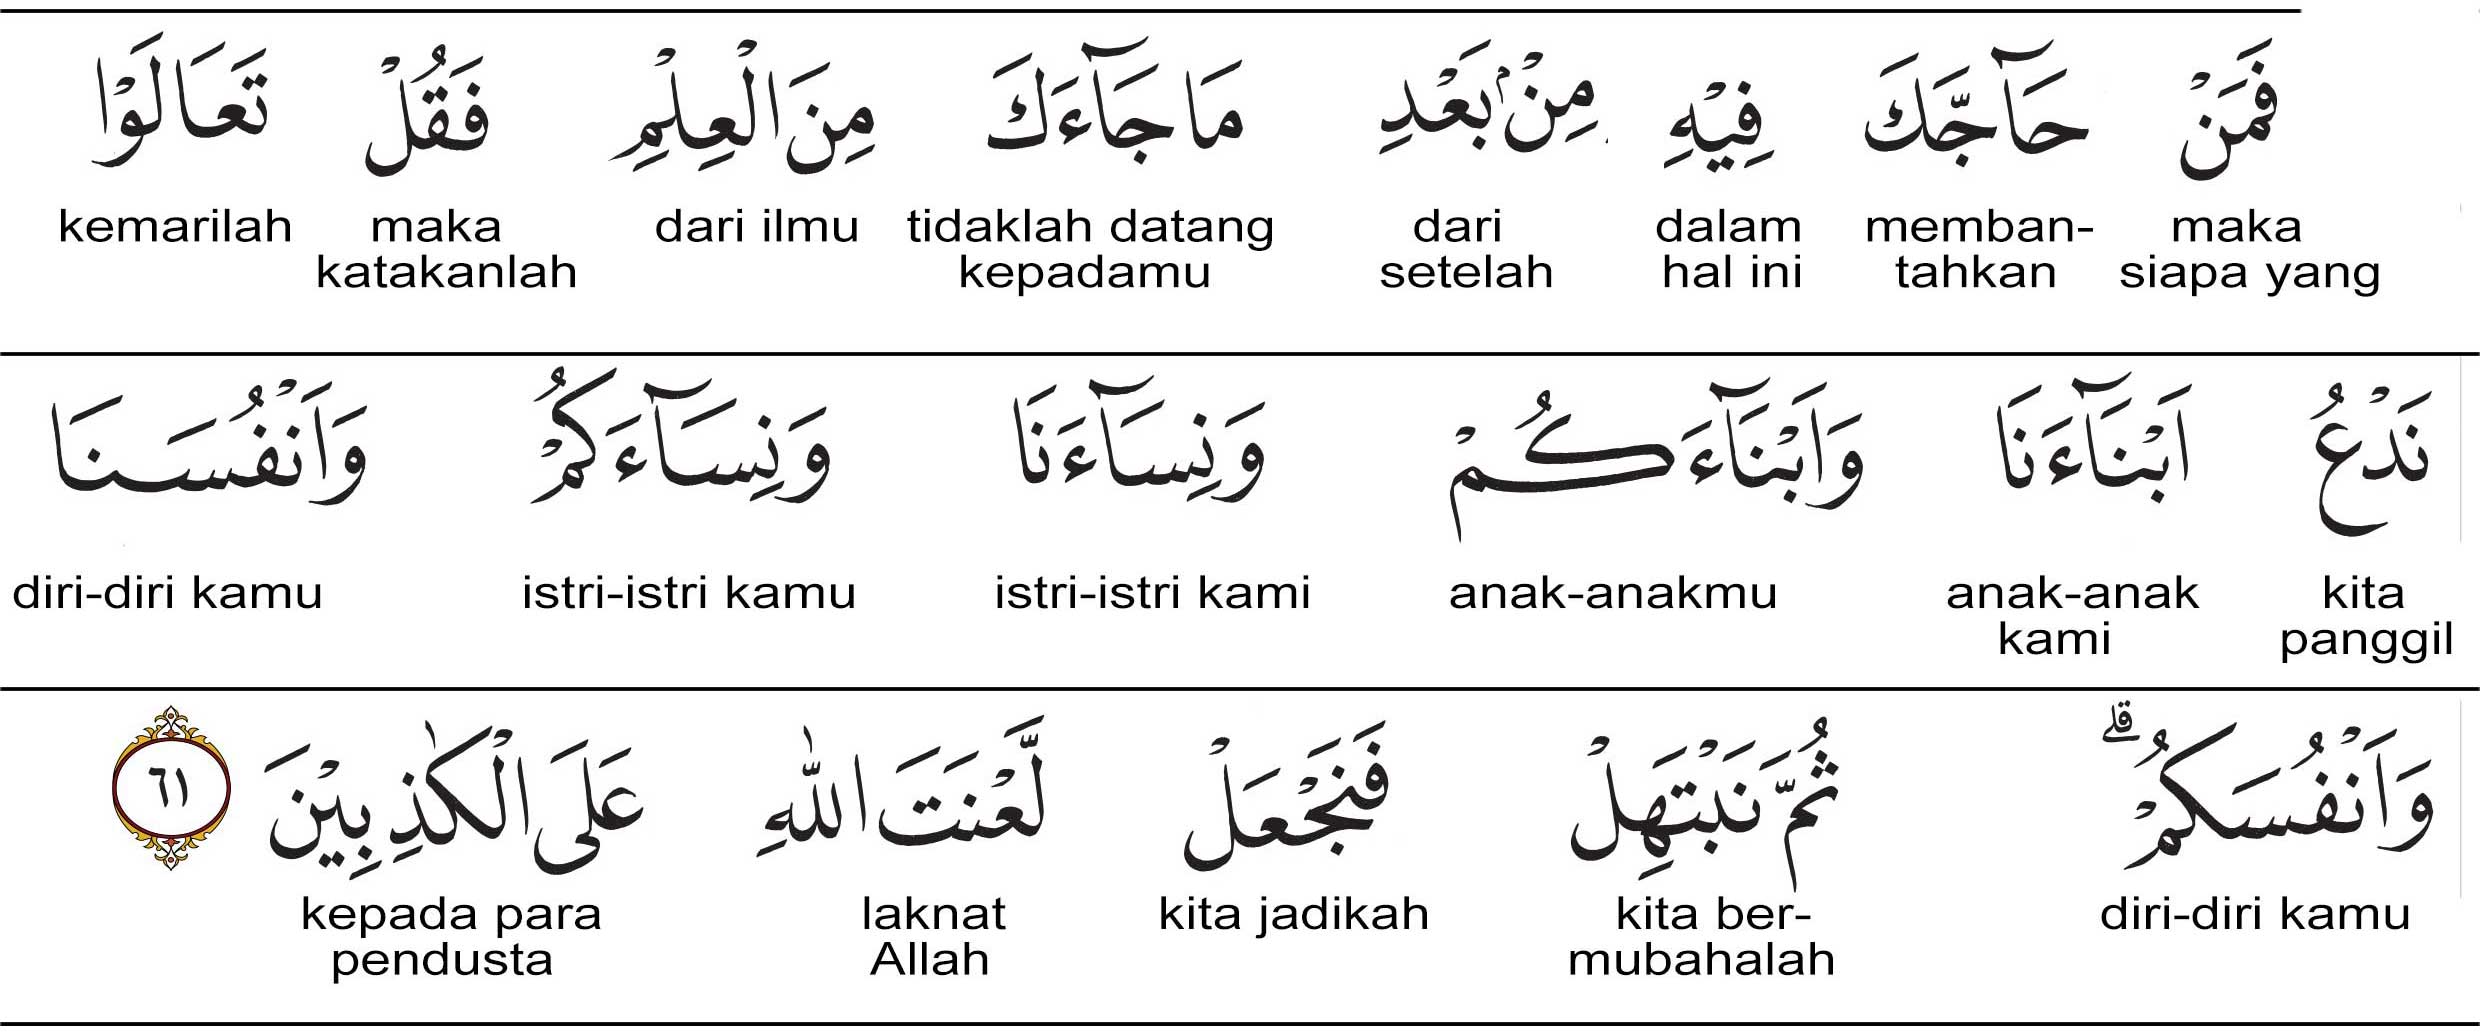 فَمَنْ حَاۤجَّكَ فِيْهِ مِنْۢ بَعْدِ مَا جَاۤءَكَ مِنَ الْعِلْمِ فَقُلْ تَعَالَوْا
maka memban- dalam dari tidaklah datang dari ilmu maka kemarilah
siapa yang tahkan hal ini setelah kepadamu katakanlah
نَدْعُ اَبْنَاۤءَنَا وَاَبْنَاۤءَكُمْ وَنِسَاۤءَنَا وَنِسَاۤءَكُمْ وَاَنْفُسَنَا
kita anak-anak anak-anakmu istri-istri kami istri-istri kamu diri-diri kamu
panggil kami
وَاَنْفُسَكُمْۗ ثُمَّ نَبْتَهِلْ فَنَجْعَلْ لَّعْنَتَ اللّٰهِ عَلَى الْكٰذِبِيْنَ ٦١
diri-diri kamu kita ber- kita jadikah laknat kepada para
mubahalah Allah pendusta